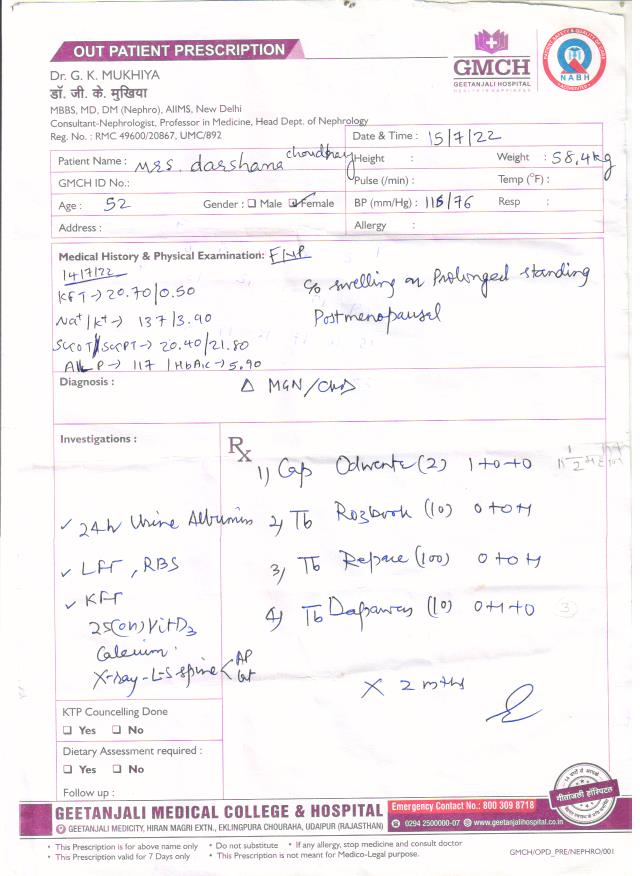 OUT PATIENT PRESCRIPTION
GMCH
GEETANJALI HOSPITAL
NABH
Dr. G. K. MUKHIYA
डॉ. जी. के. मुखिया
MBBS, MD, DM (Nephro), AIIMS, New Delhi
Consultant-Nephrologist, Professor in Medicine, Head Dept. of Nephrology
Reg. No. : RMC 49600/20867, UMC/892
Date & Time : 15/7/22
Patient Name : Mrs. darshana choudhary
Height : Weight : 58.4kg
GMCH ID No.: Pulse (/min) : Temp (°F) :
Age : 52 Gender : Male Female BP (mm/Hg) : 115/76 Resp :
Address : Allergy :
Medical History & Physical Examination: F/UP
14/7/22
KFT → 20.70/0.50
c/o swelling on Prolonged standing
Na+/K+ → 137/3.90
Postmenopausal
SGOT/SGPT → 20.40/21.80
ALP → 117 / HbA1c → 5.90
Diagnosis : Δ MGN/CKD
Investigations :
Rx
1) Cap (2) 1+0+0
24h Urine Albumin
2) Tb (10) 0+0+1
LFT, RBS
3) Tb Repace (100) 0+0+1
KFT
25(OH) Vit D3
4) Tb (10) 0+1+0
Calcium
X-ray - L-S spine < AP Lat
X 2 mths
KTP Councelling Done
Yes No
Dietary Assessment required :
Yes No
Follow up :
गीतांजली हॉस्पिटल
GEETANJALI MEDICAL COLLEGE & HOSPITAL
Emergency Contact No.: 800 309 8718
GEETANJALI MEDICITY, HIRAN MAGRI EXTN., EKLINGPURA CHOURAHA, UDAIPUR (RAJASTHAN)
0294 2500000-07 www.geetanjalihospital.co.in
• This Prescription is for above name only • Do not substitute • If any allergy, stop medicine and consult doctor
• This Prescription valid for 7 Days only • This Prescription is not meant for Medico-Legal purpose.
GMCH/OPD_PRE/NEPHRO/001